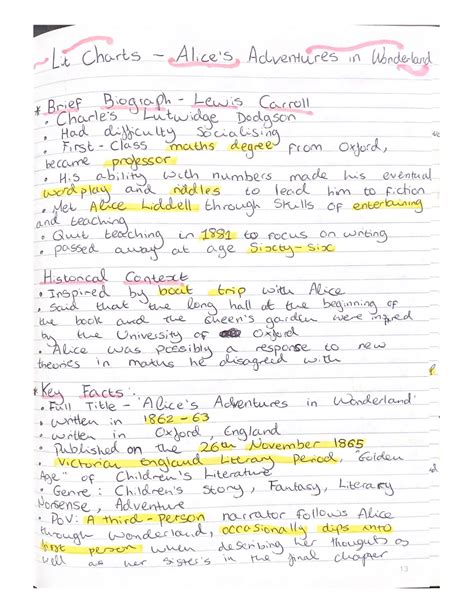 Lit Charts - Alice's Adventures in Wonderland
* Brief Biograph - Lewis Carroll
• Charle's Lutwidge Dodgson
• Had difficulty Socialising
• First-Class maths degree from Oxford,
became professor
• His ability with numbers made his eventual
wordplay and riddles to lead him to fiction
• Met Alice Liddell through skills of entertaining
and teaching
• Quit teaching in 1881 to focus on writing
• passed away at age Sixcty-Six
Historical Context
• Inspired by boat trip with Alice
• Said that the long hall at the beginning of
the book and the queen's garden were inspired
by the University of Oxford
• Alice was possibly a response to new
theories in maths he disagreed with
* Key Facts:
• Full Title - 'Alice's Adventures in Wonderland'
• written in 1862-63
• written in Oxford, England
• Published on the 26th November 1865
• Victorian England Literary Period, "Golden
Age" of Children's Literature
• Genre: Children's Story, Fantasy, Literary
Nonsense, Adventure
• PoV: A third-person narrator follows Alice
through wonderland, occasionally dips into
first person when describing her thoughts as
well as her sister's in the final chapter
13